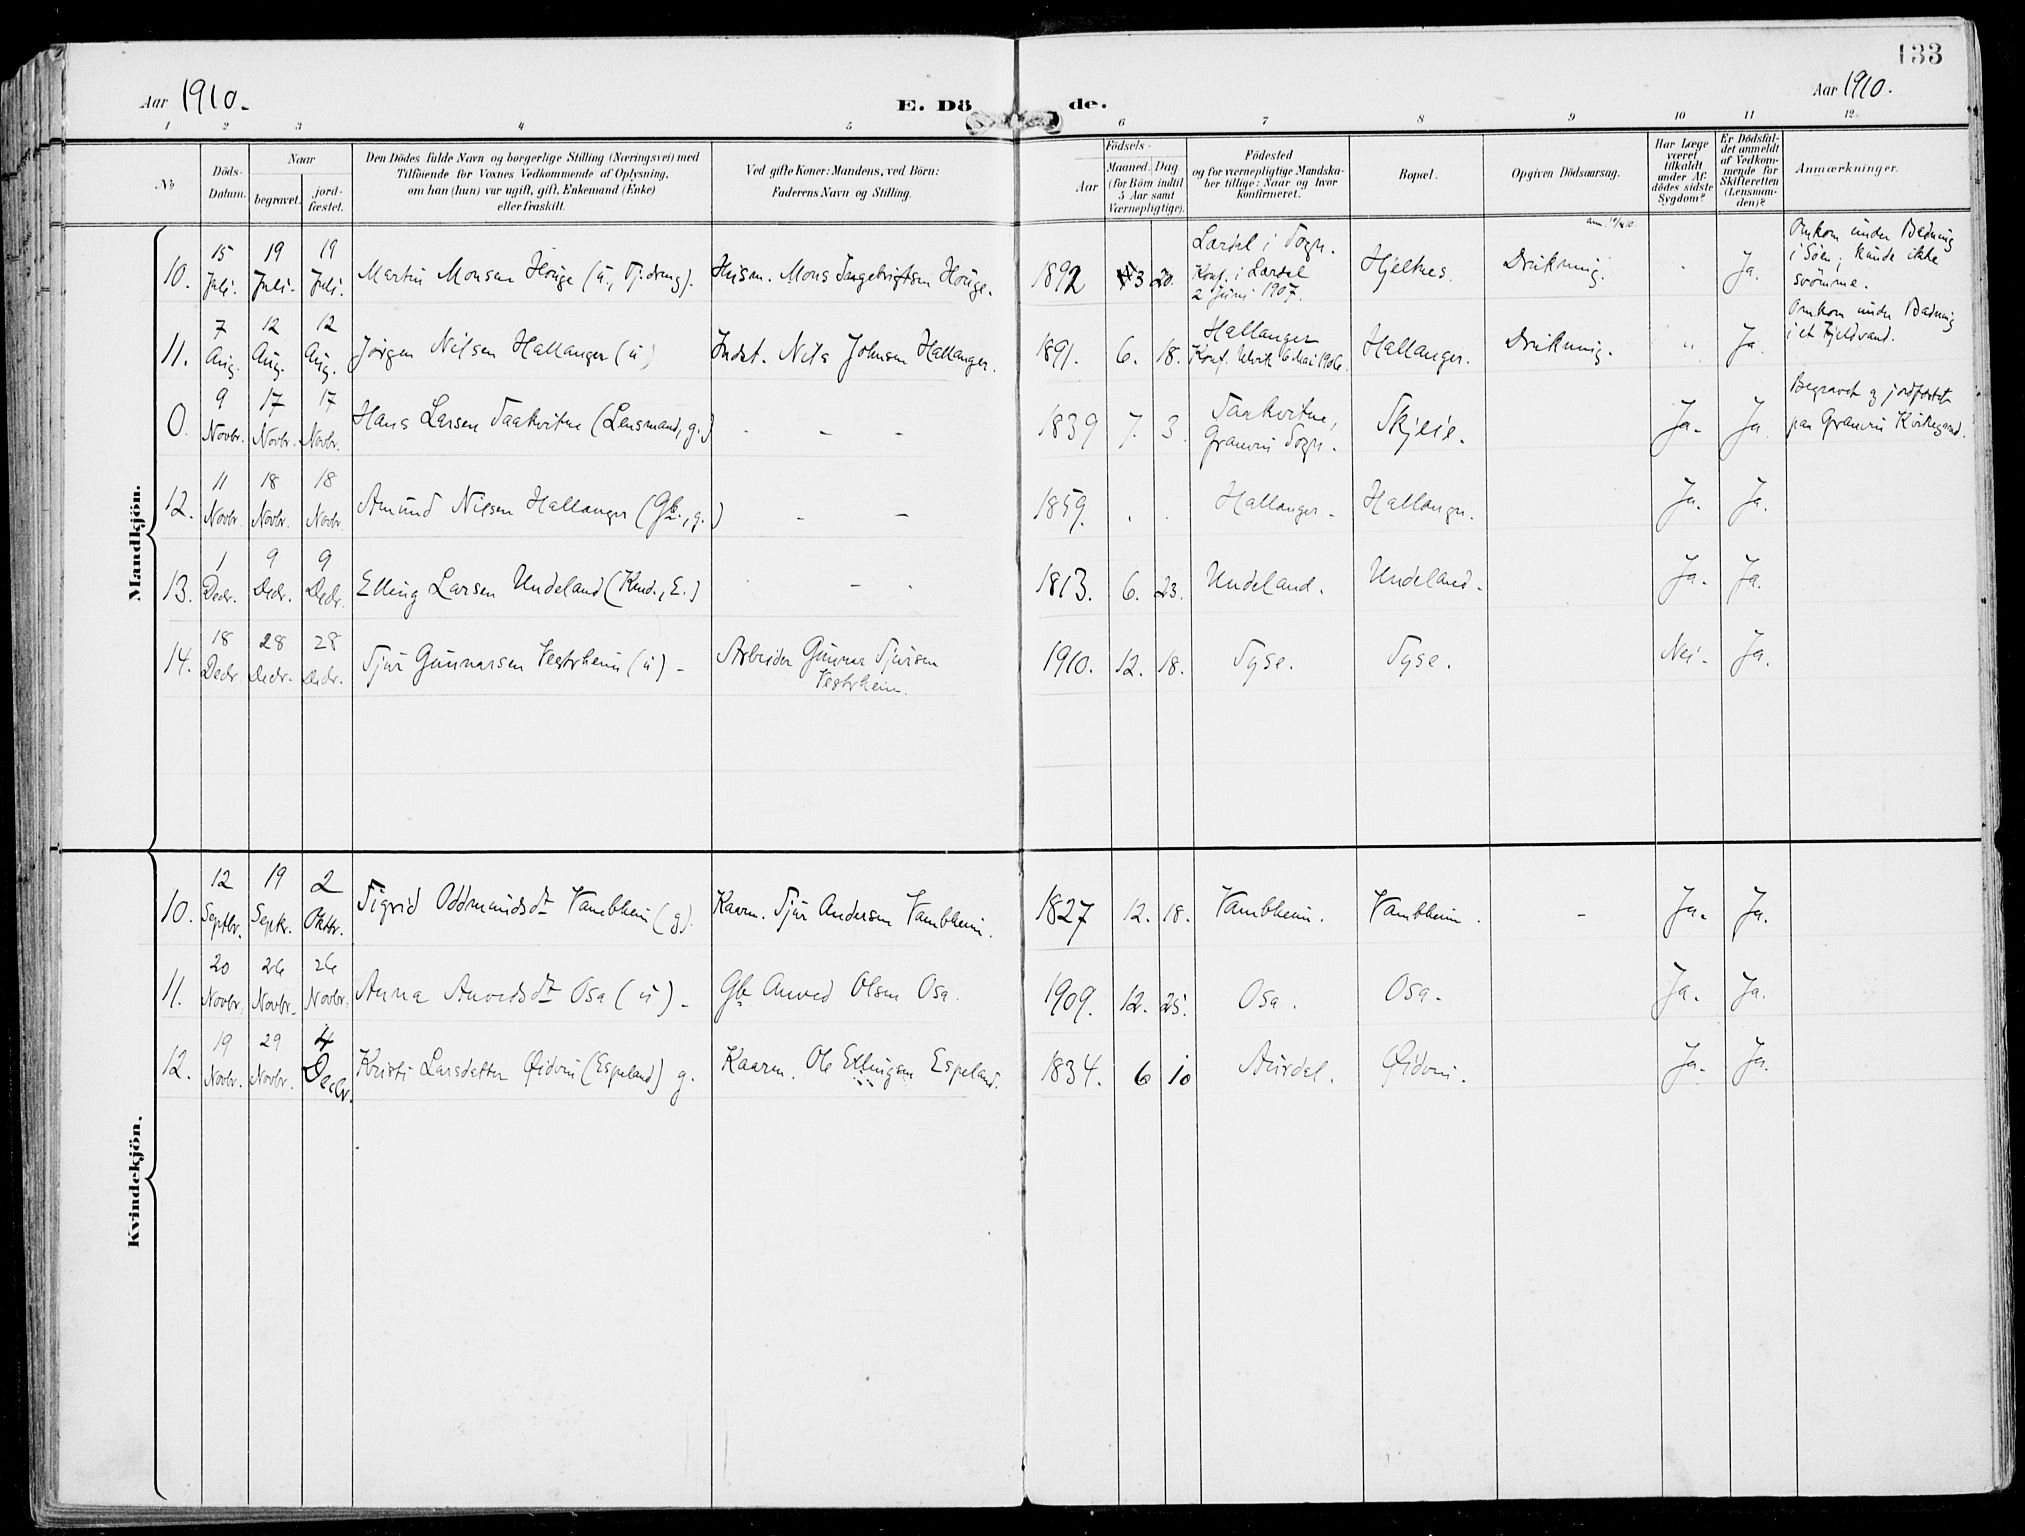 133
Aar 1910.
E. Dö de.
Aar 1910.
1 2 3 4 5 6 7 8 9 10 11 12
No
Döds-
Datum.
Naar
begravet.
jord-
fæstet.
Den Dödes fulde Navn og borgerlige Stilling (Næringsvei) med
Tilföiende for Voxnes Vedkommende af Oplysning,
om han (hun) var ugift, gift, Enkemand (Enke)
eller fraskilt.
Ved gifte Koner: Mandens, ved Börn:
Faderens Navn og Stilling.
Födsels-
Aar
Maaned. Dag
(for Börn indtil
5 Aar samt
Værnepligtige).
Födested
og for værnepligtige Mandska-
ber tillige: Naar og hvor
konfirmeret.
Bopæl.
Opgiven Dödsaarsag.
Har Læge
været
tilkaldt
under Af-
dödes sidste
Sygdom?
Er Dödsfal-
det anmeldt
af Vedkom-
mende for
Skifteretten
(Lensman-
den)?
Anmærkninger.
Mandkjön.
10. 15 Juli. 19 Juli. 19 Juli. Martin Monsen Houge (u., Tj.dreng). Husm. Mons Ingebrigtsen Houge. 1892 3 20. Lærdal i Sogn.
Konf. i Lærdal
2 Juni 1907. Hjeltnes. Drukning. " Ja. Omkom under Badning
i Söen; kunde ikke
svömme.
11. 7 Aug. 12 Aug. 12 Aug. Jørgen Nilsen Hallanger (u) Indst. Nils Johnsen Hallanger. 1891. 6. 18. Hallanger
Konf. Ulvik 6 Mai 1906. Hallanger. Drukning. " Ja. Omkom under Badning
i et Fjeldvand.
0. 9 Novbr. 17 Novbr. 17 Novbr. Hans Larsen Taakvitne (Lensmand, g.) - - - 1839 7. 3. Taakvitne,
Granvin Sogn. Skjeie. Ja. Ja. Begravet og jordfæstet
paa Granvin Kirkegaard.
12. 11 Novbr. 18 Novbr. 18 Novbr. Amund Nilsen Hallanger (Gb., g.) - - 1859. . . Hallanger. Hallanger. Ja. Ja.
13. 1 Decbr. 9 Decbr. 9 Decbr. Elling Larsen Undeland (Kaarmd., E.) - - - 1813. 6. 23. Undeland. Undeland. Ja. Ja.
14. 18 Decbr. 28 Decbr. 28 Decbr. Sjur Gunnarsen Vestrheim (u) - Arbeider Gunnar Sjursen
Vestrheim. 1910. 12. 18. Syse. Syse. Nei. Ja.
Kvindekjön.
10. 12 Septbr. 19 Septbr. 2 Oktbr. Sigrid Oddmundsdtr Vambheim (g). Kaarm. Sjur Andersen Vambheim. 1827 12. 18. Vambheim. Vambheim. - Ja. Ja.
11. 20 Novbr. 26 Novbr. 26 Novbr. Anna Anvedsdtr Osa (u) - Gb. Anved Olsen Osa. 1909. 12. 25. Osa. Osa. Ja. Ja.
12. 19 Novbr. 29 Novbr. 4 Decbr. Kristi Larsdatter Øidvin (Espeland) g. Kaarm. Ole Ellingsen Espeland. 1834. 6 10 Aurdal. Øidvin. Ja. Ja.